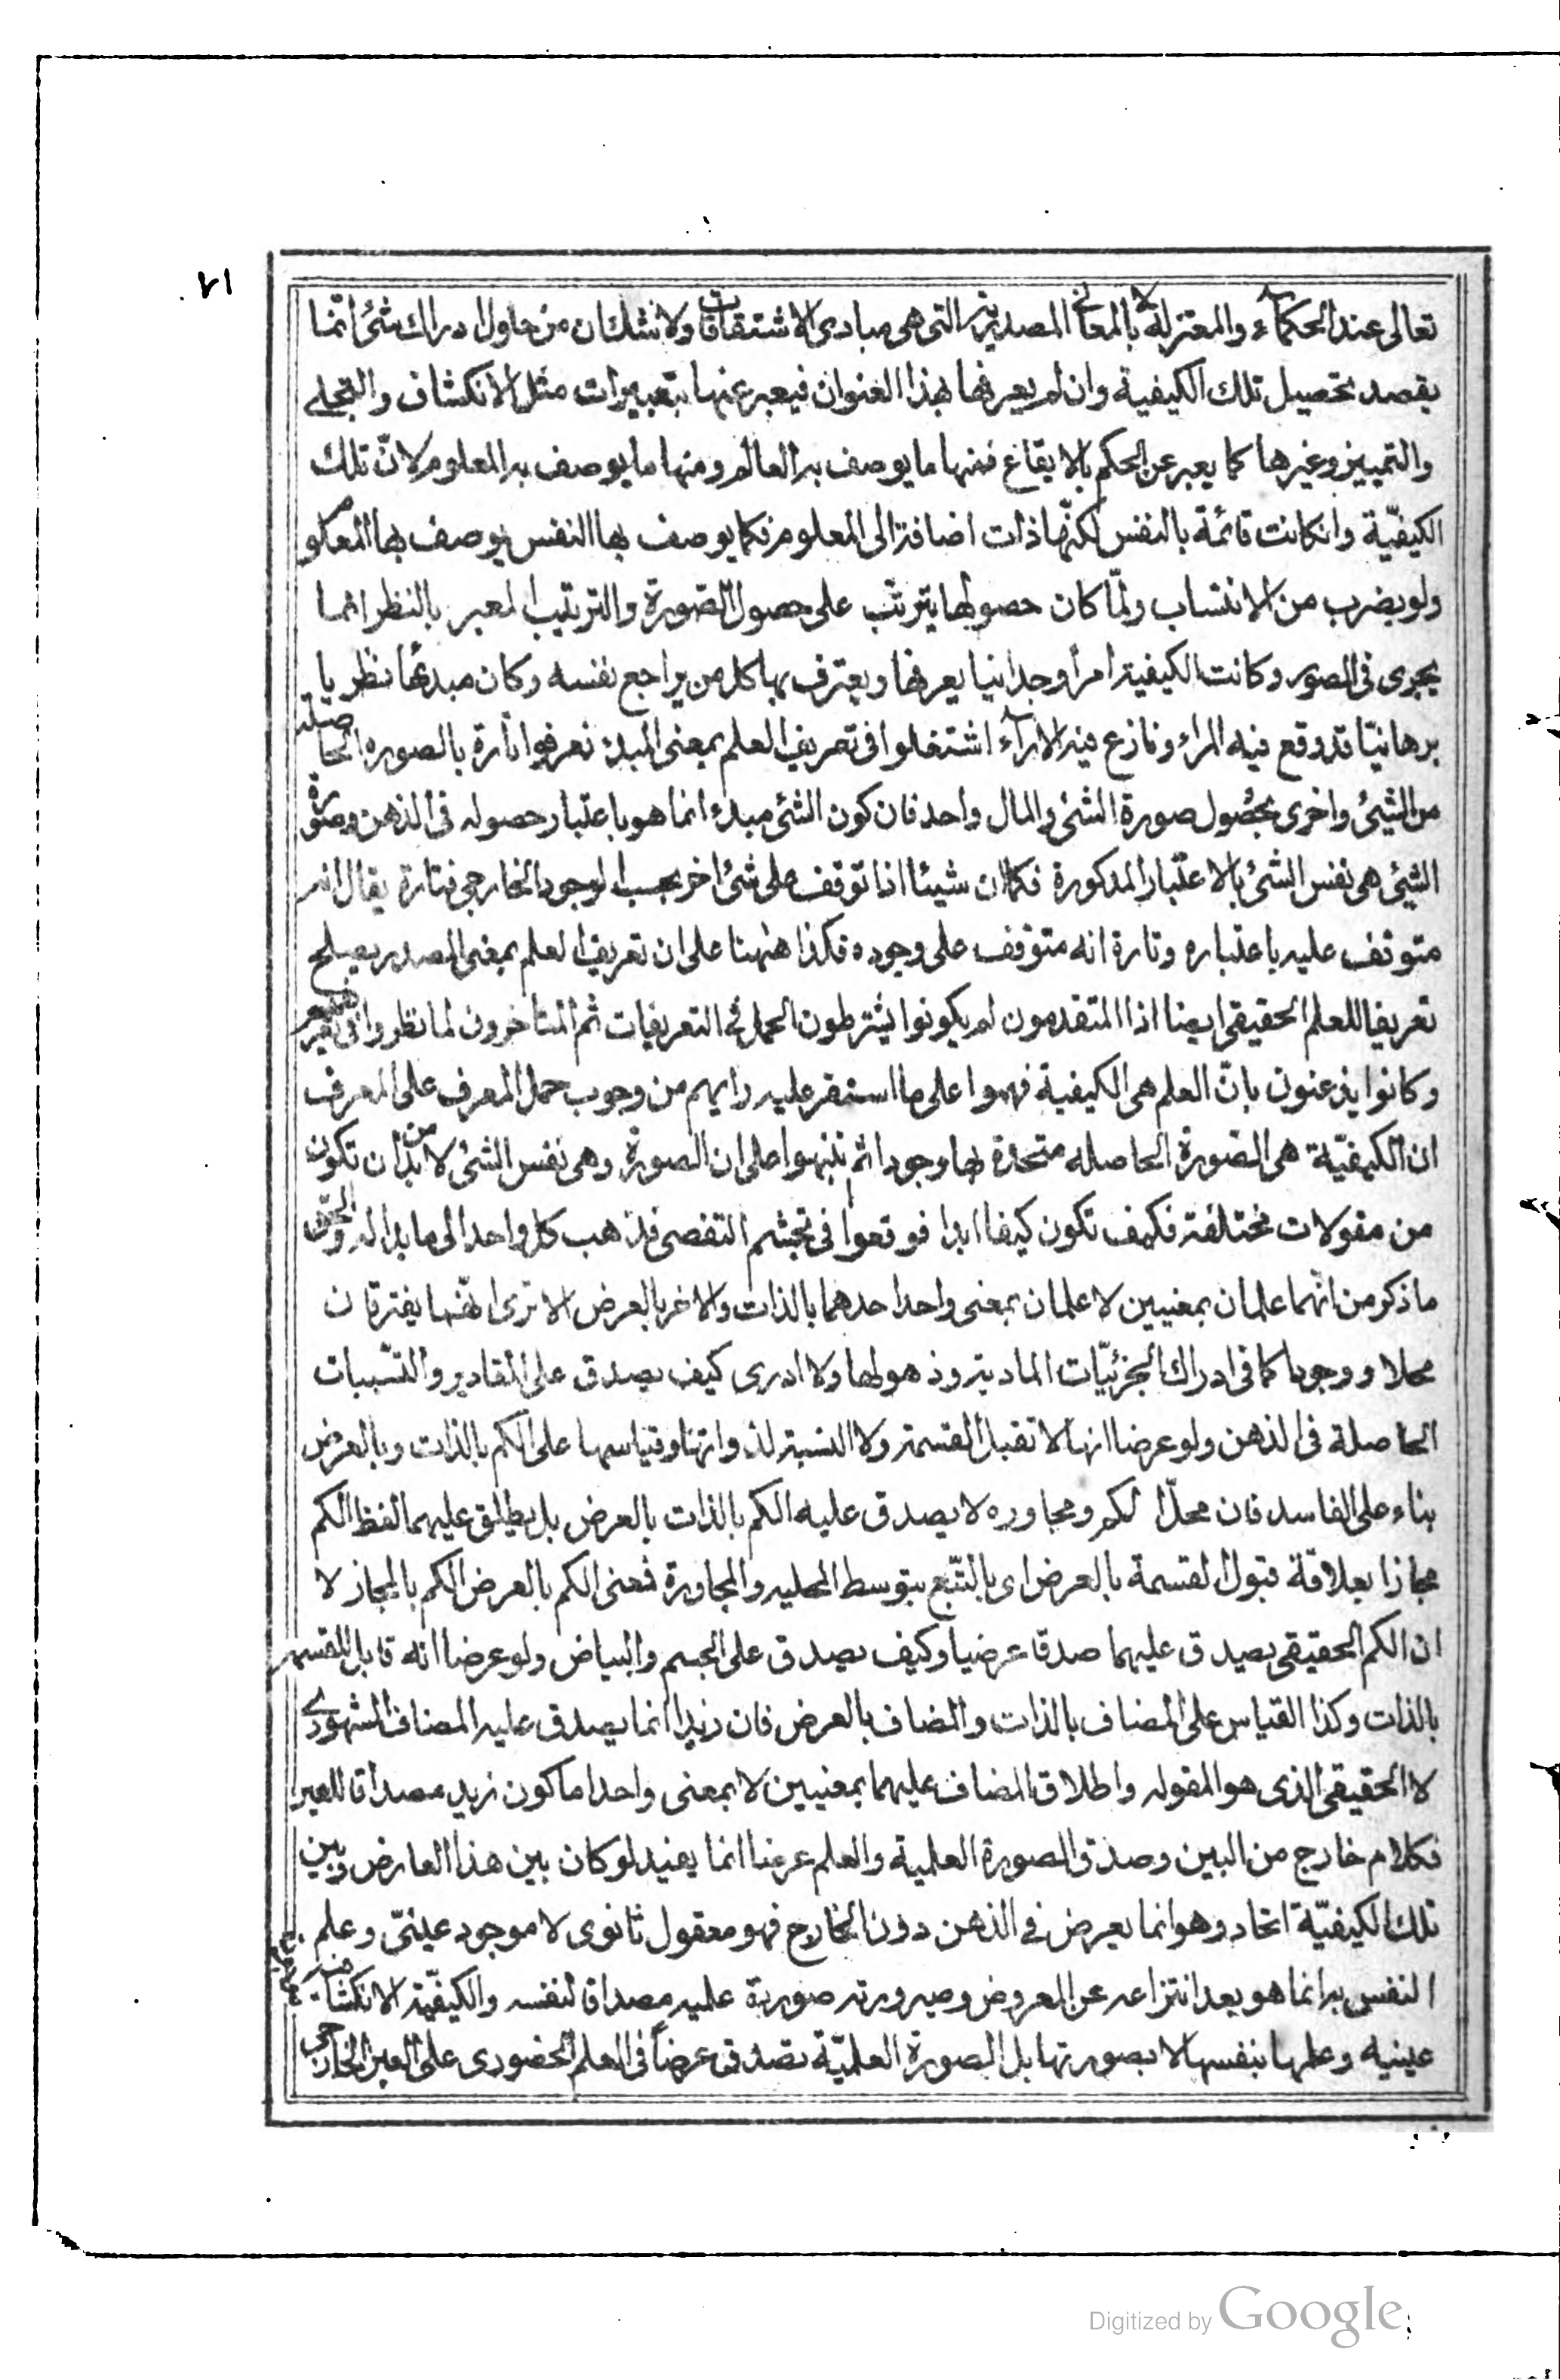 ٧١
تعالى عند الحكماء والمعتزلة لا بالمعاني المصدرية التى هى مبادى الاشتقاقات ولا شك ان من حاول ادراك شئ انما
يقصد تحصيل تلك الكيفية وان لم يعرفها بهذا العنوان فيعبر عنها بتعبيرات مثل الانكشاف والتجلے
والتمييز وغيرها كما يعبر عن الحكم بالايقاع فمنها ما يوصف به العالم ومنها ما يوصف به المعلوم لانّ تلك
الكيفيّة وانكانت قائمة بالنفس لكنّها ذات اضافة الى المعلوم فكما يوصف بها النفس يوصف بها المعلوم
ولو بضرب من الانتساب ولمّا كان حصولها يترتب على حصول الصّورة والترتيب المعبر بالنظر انما
يجرى فى الصور وكانت الكيفية امرا وجدانيا يعرفها ويعترف بها كل من يراجع نفسه وكان مبدئها نظريا
برهانيّا قد وقع فيه المراء وتنازع فيه الآراء اشتغلوا فى تعريف العلم بمعنى المبدء فعرفوا تارة بالصورة الحاصلة
من الشيئ واخرى بحصُول صورة الشئ والمال واحد فان كون الشئ مبدء انما هو باعتبار حصوله فى الذهن وصورة
الشيئ هى نفس الشئ بالاعتبار المذكورة فكما ان شيئا اذا توقف على شئ اخر بحسب الوجود الخارجى فتارة يقال انه
متوقف عليه باعتباره وتارة انه متوقف على وجوده فكذا ههنا على ان تعريف العلم بمعنى المصدر يصلح
تعريفا للعلم الحقيقى ايضا اذا المتقدمون لم يكونوا يشترطون الحمل فے التعريفات ثم المتأخرون لما نظروا فى تعريفهم
وكانوا يذعنون بانّ العلم هى الكيفية فهموا على ما استقر عليه رايهم من وجوب حمل المعرف على المعرف
ان الكيفيّة هى الصّورة الحاصله متحدة بها وجودا ثم تنبهوا على ان الصورة وهى نفس الشئ لا بد من ان تكون
من مقولات مختلفة فكيف تكون كيفا ابدا فوقعوا فى تجشم التفصى فذهب كل واحد الى ما بدا له والحق
ما ذكر من انّهما علمان بمعنيين لا علمان بمعنى واحد احدهما بالذات والاخر بالعرض الا ترى انهما يفترقان
محلا ووجودا كما فى ادراك الجزئيّات المادية وذهولها ولا ادرى كيف يصدق على المقادير والنّسبات
الحاصلة فى الذهن ولو عرضا انها لا تقبل القسمة ولا النسبة لذواتها وقياسها على الكم بالذات وبالعرض
بناء على الفاسد فان محلّ الكم ومجاوره لا يصدق عليه الكم بالذات بالعرض بل يطلق عليهما لفظ الكم
مجازا بعلاقة قبول القسمة بالعرض اى بالتّبع بتوسط المحليه والمجاورة فمعنى الكم بالعرض الكم بالمجاز لا
ان الكم الحقيقى يصدق عليهما صدقا عرضيا وكيف يصدق على الجسم والبياض ولو عرضا انه قابل للقسمة
بالذات وكذا القياس على المضاف بالذات والمضاف بالعرض فان زيدا انما يصدق عليه المضاف المشهورے
لا الحقيقى الذى هو المقوله واطلاق المضاف عليهما بمعنيين لا بمعنى واحد اما كون زيد مصداقا للعبر
فكلام خارج من البين وصدق الصورة العلمية والعلم عرضا انما يفيد لو كان بين هذا العارض وبين
تلك الكيفيّة اتحاد وهو انما يعرض فے الذهن دون الخارج فهو معقول ثانوى لا موجود عينىّ وعلم
النفس به انما هو بعد انتزاعه عن المعروض وصيرورته صورية علمية مصداقا لنفسه والكيفيّة الانكشافية
عينيه وعلمها بنفسها لا بصورتها بل الصورة العلميّة تصدق عرضاً فى العلم الحضورى على العين الخارجى
Digitized by Google